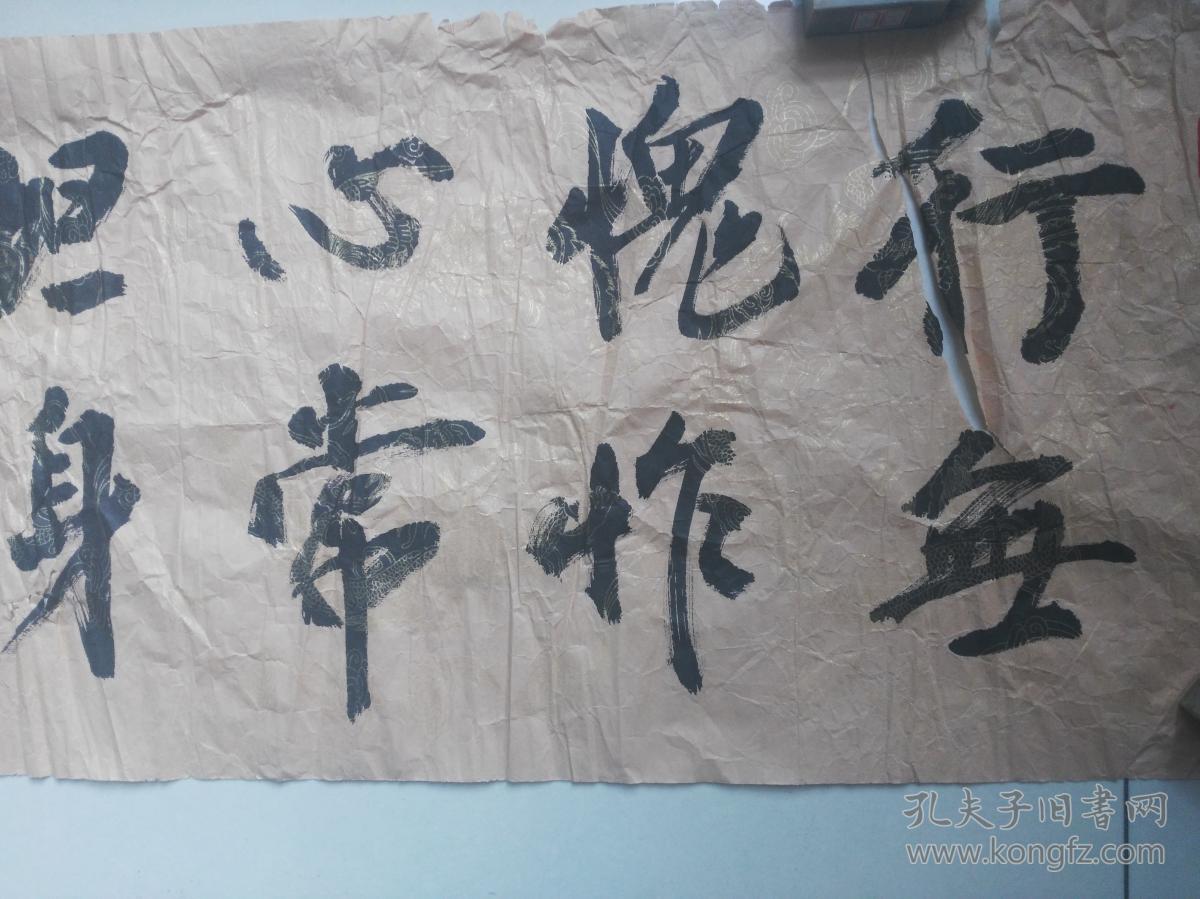 行無
愧怍
心常
坦身
孔夫子旧書网
www.kongfz.com